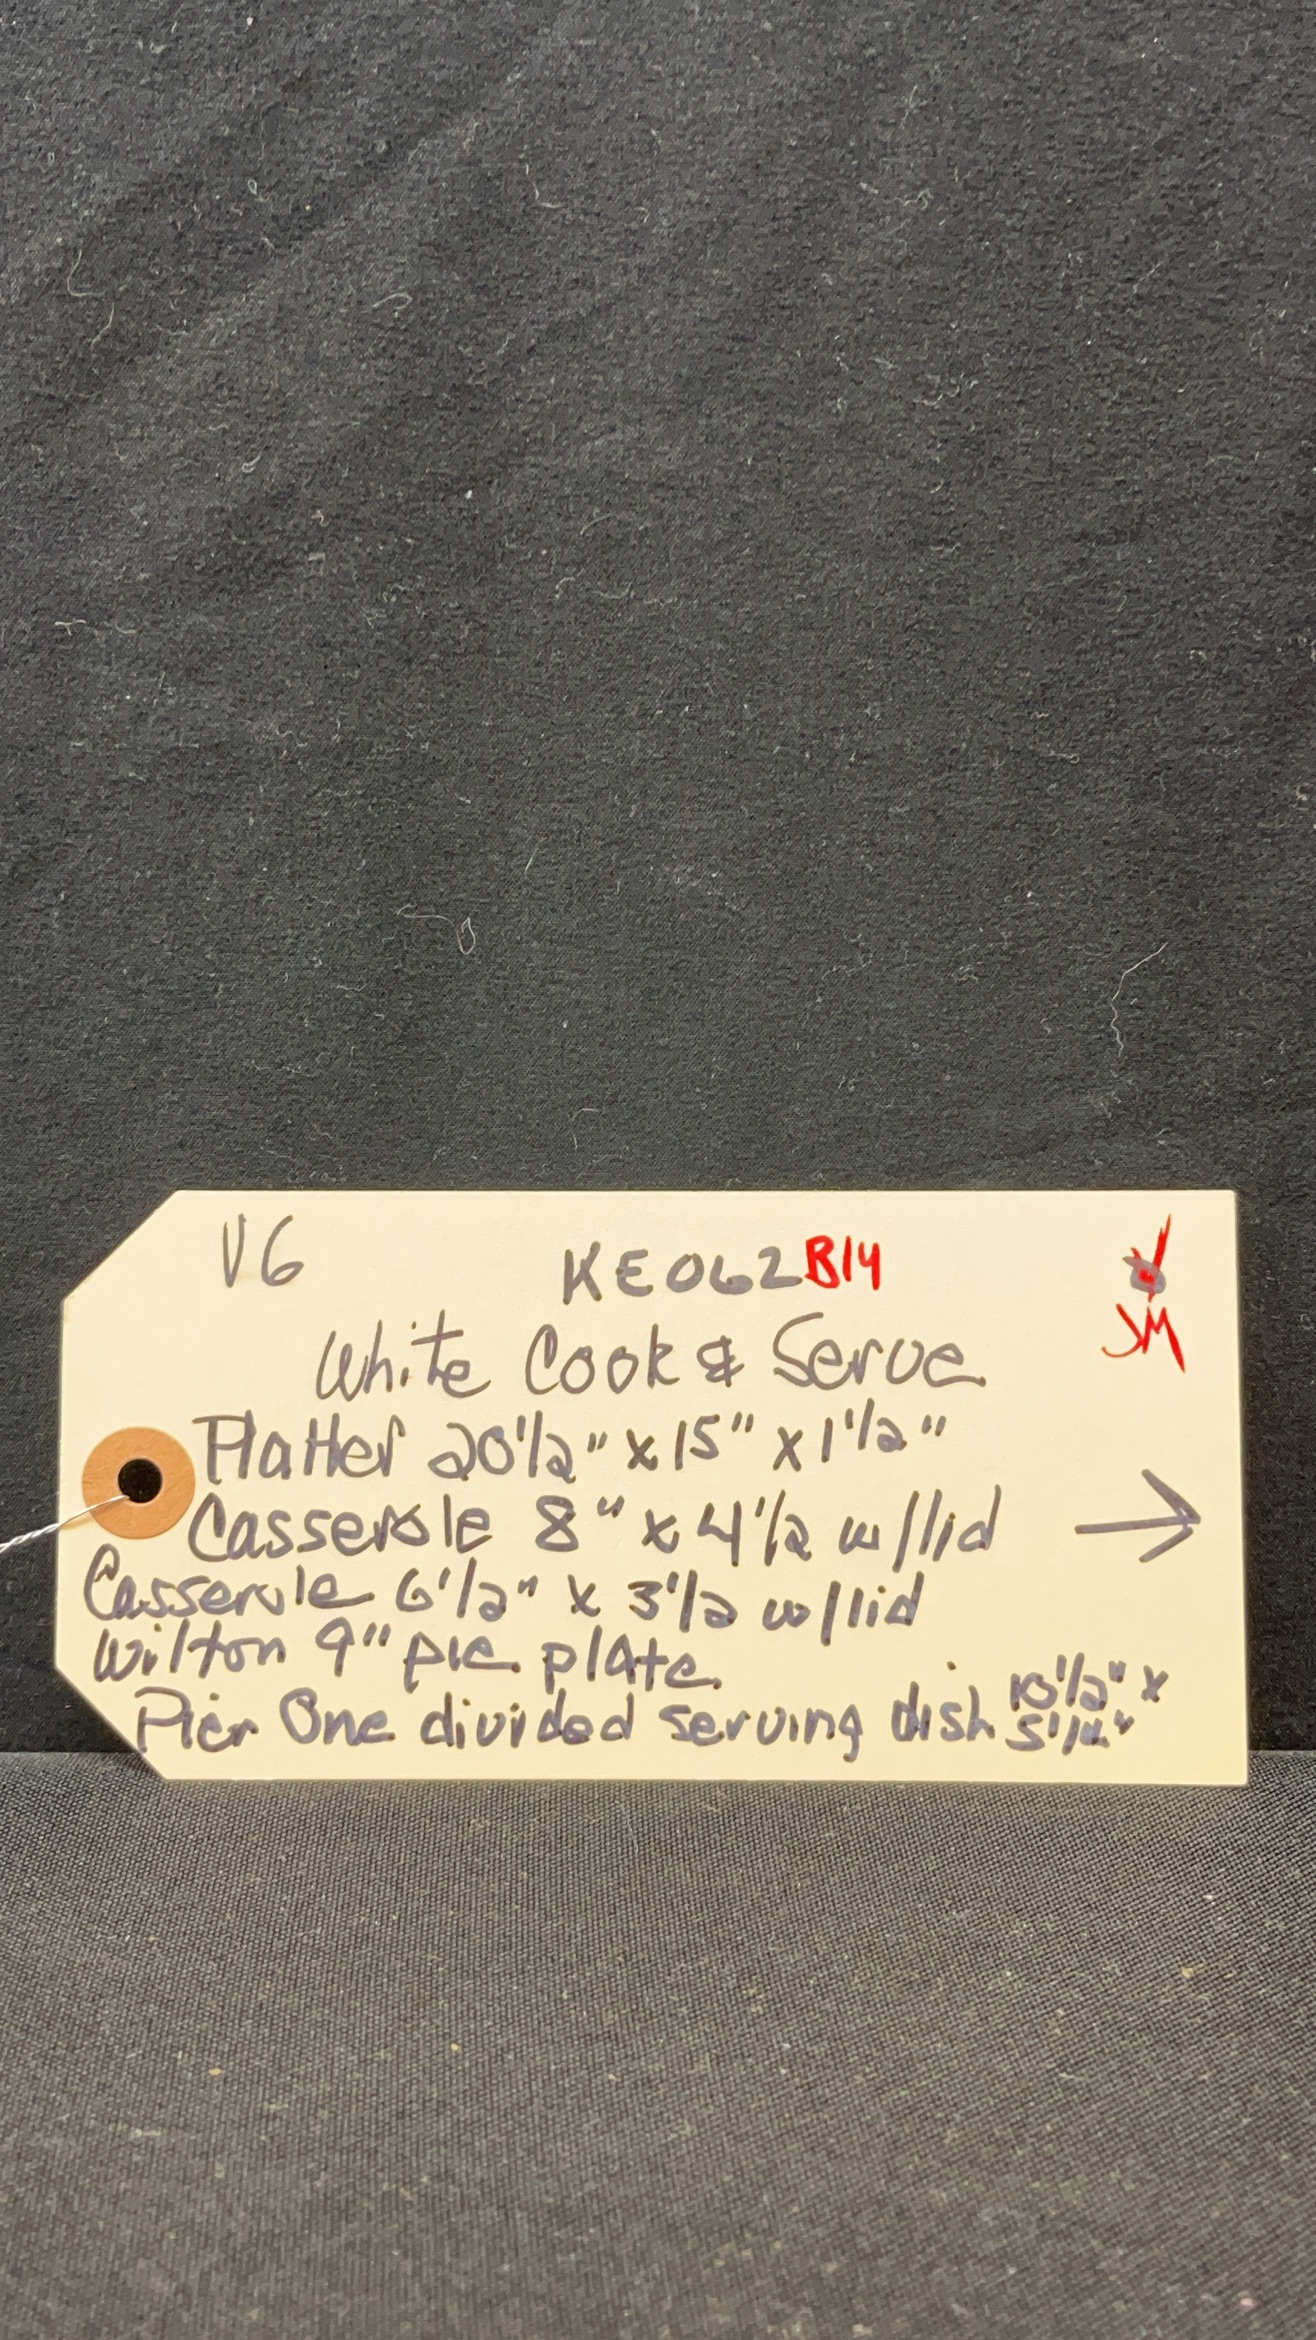 V6 KE062 B14
JM
White Cook & Serve
Platter 20 1/2" x 15" x 1 1/2"
Casserole 8" x 4 1/2 w/lid
Casserole 6 1/2" x 3 1/2 w/lid
Wilton 9" pie plate
Pier One divided serving dish 10 1/2" x